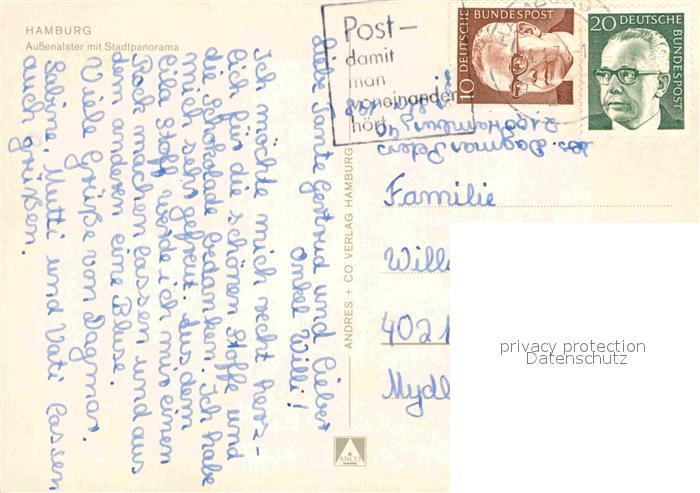 HAMBURG
Außenalster mit Stadtpanorama
Post-
damit
man
voneinander
hört
DEUTSCHE BUNDESPOST
10
20 DEUTSCHE
BUNDESPOST
Liebe Tante Gertrud und lieber
Onkel Willi!
Ich möchte mich recht herz-
lich für die schönen Stoffe und
die Schokolade bedanken. Ich habe
mich sehr gefreut. Aus dem
lila Stoff werde ich mir einen
Rock machen lassen und aus
dem anderen eine Bluse.
Viele Grüße von Dagmar.
Sabine, Mutti und Vati lassen
auch grüßen.
ANDRES + CO VERLAG HAMBURG
ANCO
Abs. Dagmar Peters
2100 Hamburg 90
Familie
Will
4021
Mydl
privacy protection
Datenschutz